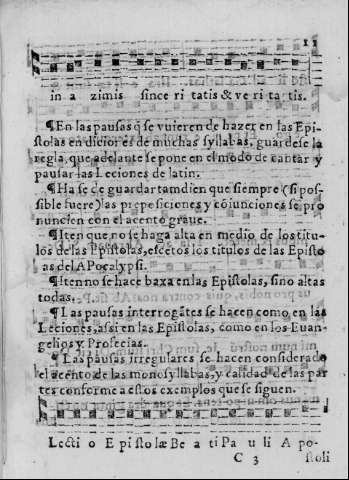 11
in a zimis since ri tatis & ve ri tatis.
¶En las pausas q̃ se vuieren de hazer en las Epi-
stolas en dictiōes de muchas syllabas, guardese la
regla, que adelante se pone en el modo de cantar y
pausar las Leciones de latin.
¶Ha se de guardar tamdien que siempre (si pos-
sible fuere) las preposiciones y cōiunciones se pro
nuncien con el acento graue.
¶Iten que no se haga alta en medio de los titu-
los de las Epistolas, escetos los titulos de las Episto
as del APocalypsi.
¶Iten no se hace baxa en las Epistolas, sino altas
todas.
¶Las pausas interrogātes se hacen como en las
Leciones, assi en las Epistolas, como en los Euan-
gelios y Profecias.
¶Las pausas irregulares se hacen considerado
el acento de las monosyllabas, y calidad de las par
tes conforme a estos exemplos que se siguen.
Lecti o Epistolæ Be a ti Pa u li A po-
C 3 stoli